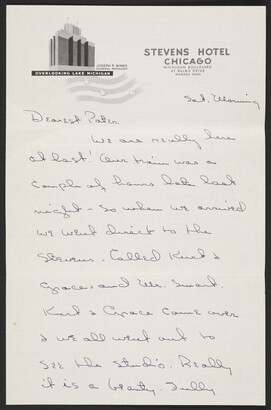 JOSEPH P. BINNS
GENERAL MANAGER
OVERLOOKING LAKE MICHIGAN
STEVENS HOTEL
CHICAGO
MICHIGAN BOULEVARD
AT BALBO DRIVE
WABASH 4400
Sat. Morning
Dearest Pater
We are really here
at last! Our train was a
couple of hours late last
night - so when we arrived
we went direct to the
Stevens. Called Kurt &
Grace and Mr. Smart.
Kurt & Grace came over
& we all went out to
see the studio. Really
it is a beauty. Fully